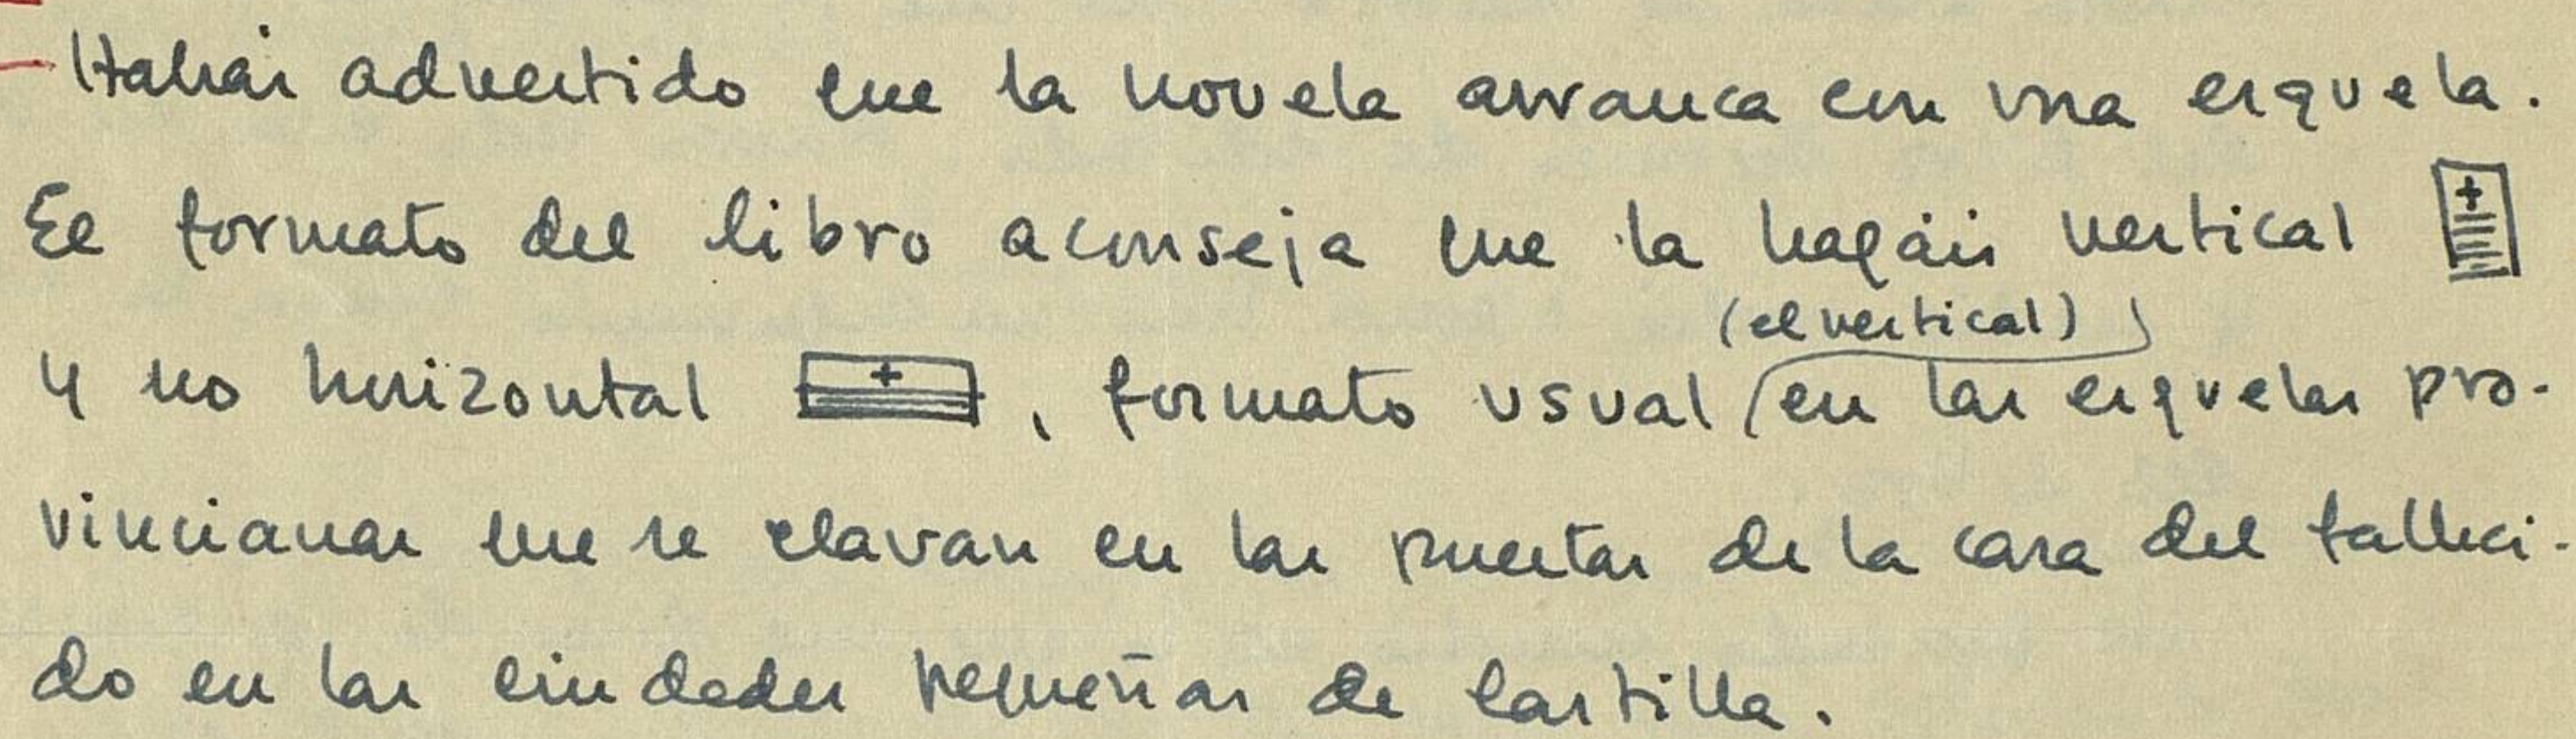 Habéis advertido que la novela arranca con una esquela.
El formato del libro aconseja que la hagáis vertical
y no horizontal , formato usual (el vertical) en las esquelas pro-
vincianas que se clavan en las puertas de la casa del falleci-
do en las ciudades pequeñas de Castilla.